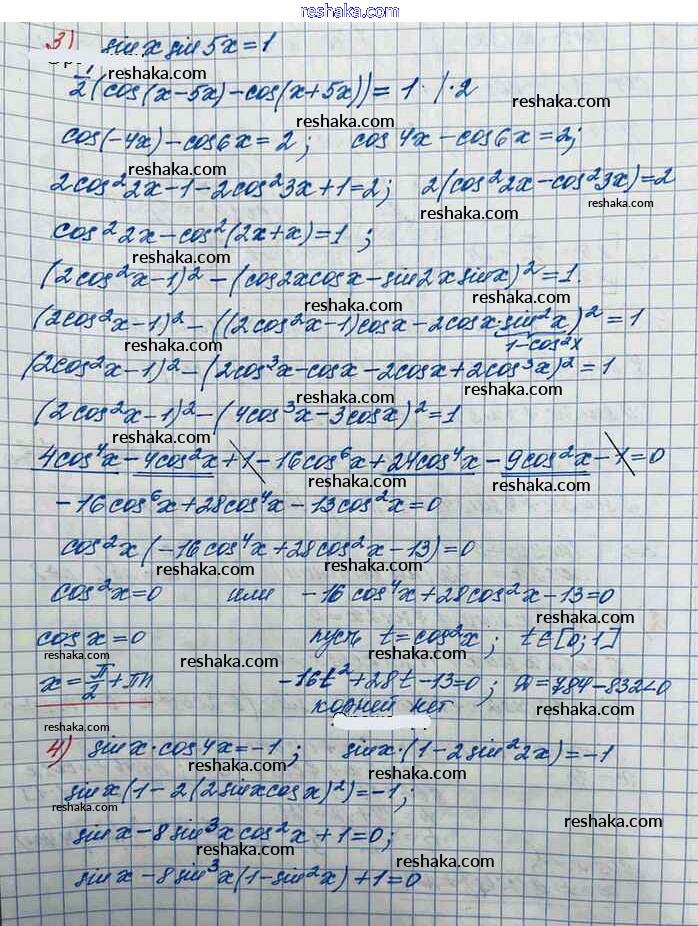 reshaka.com
3) sin x sin 5x = 1
reshaka.com
1/2 (cos(x-5x) - cos(x+5x)) = 1 /·2
reshaka.com
reshaka.com
cos(-4x) - cos 6x = 2; cos 4x - cos 6x = 2;
reshaka.com
2cos²2x - 1 - 2cos²3x + 1 = 2; 2(cos²2x - cos²3x) = 2
reshaka.com
reshaka.com
cos²2x - cos²(2x+x) = 1;
reshaka.com
(2cos²x-1)² - (cos2x cosx - sin2x sinx)² = 1.
reshaka.com
(2cos²x-1)² - ((2cos²x-1)cosx - 2cosx·sin²x)² = 1
1-cos²x
reshaka.com
(2cos²x-1)² - (2cos³x - cosx - 2cosx + 2cos³x)² = 1
reshaka.com
reshaka.com
(2cos²x-1)² - (4cos³x - 3cosx)² = 1
reshaka.com
4cos⁴x - 4cos²x + 1 - 16cos⁶x + 24cos⁴x - 9cos²x - 1 = 0
reshaka.com
reshaka.com
-16cos⁶x + 28cos⁴x - 13cos²x = 0
cos²x(-16cos⁴x + 28cos²x - 13) = 0
reshaka.com
reshaka.com
cos²x = 0 или -16cos⁴x + 28cos²x - 13 = 0
reshaka.com
cos x = 0 пусть t = cos²x; t∈[0;1]
reshaka.com
reshaka.com
x = π/2 + πn -16t² + 28t - 13 = 0; D = 784 - 832 < 0
reshaka.com
корней нет
reshaka.com
4) sinx·cos4x = -1; sinx·(1-2sin²2x) = -1
reshaka.com
reshaka.com
sinx(1-2(2sinxcosx)²) = -1;
reshaka.com
reshaka.com
sinx - 8sin³xcos²x + 1 = 0;
reshaka.com
reshaka.com
sinx - 8sin³x(1-sin²x) + 1 = 0
reshaka.com